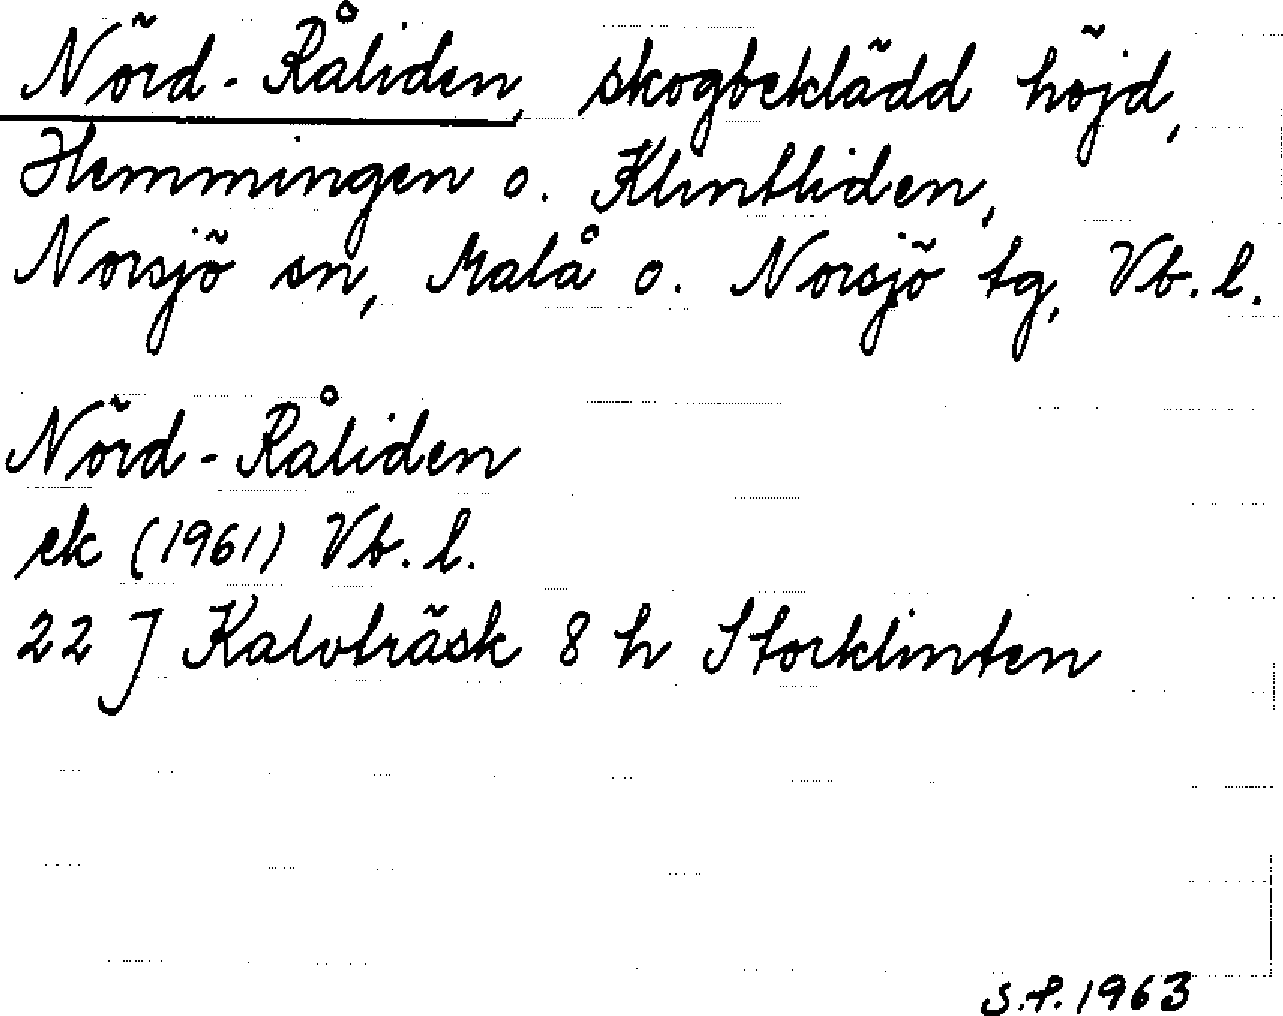 Nörd-Råliden, skogbeklädd höjd,
Hemmingen o. Klintliden,
Norsjö sn, Malå o. Norsjö tg, Vb. l.
Nörd-Råliden
ek (1961) Vb. l.
22 J Kalvträsk 8 h Storklinten
S.P. 1963